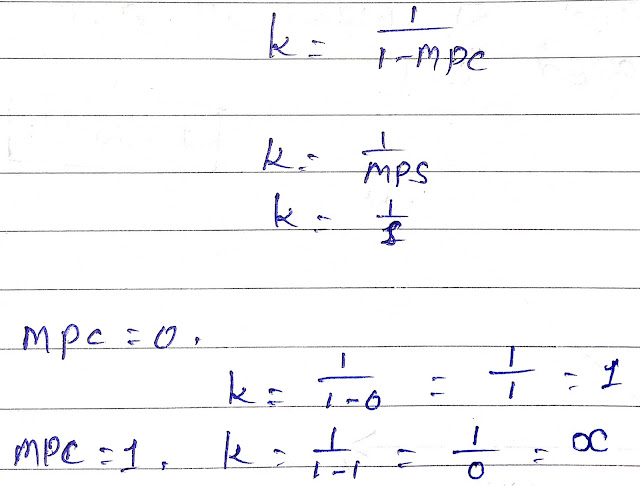 k = 1/1-MPC
k = 1/MPS
k = 1/s
MPC = 0.
k = 1/1-0 = 1/1 = 1
MPC = 1. k = 1/1-1 = 1/0 = ∞